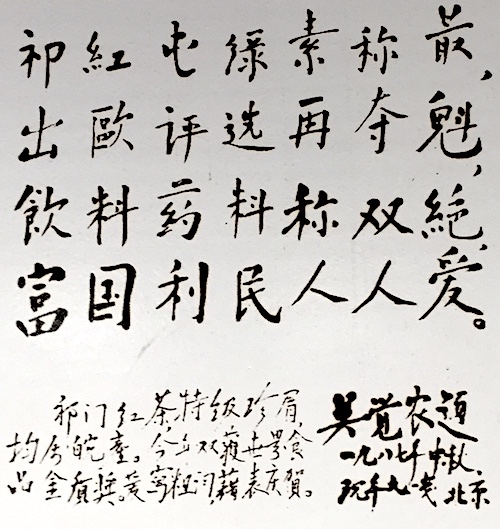 祁紅屯綠素称最，
出歐評选再夺魁，
飲料药料称双絕，
富国利民人人爱。
祁门红茶，特级珍眉，
均属皖產。今又双獲世界食
品金质奬。爰寫粗词，藉表庆賀。
吴觉农题
一九八七年中秋
现年九一岁 北京